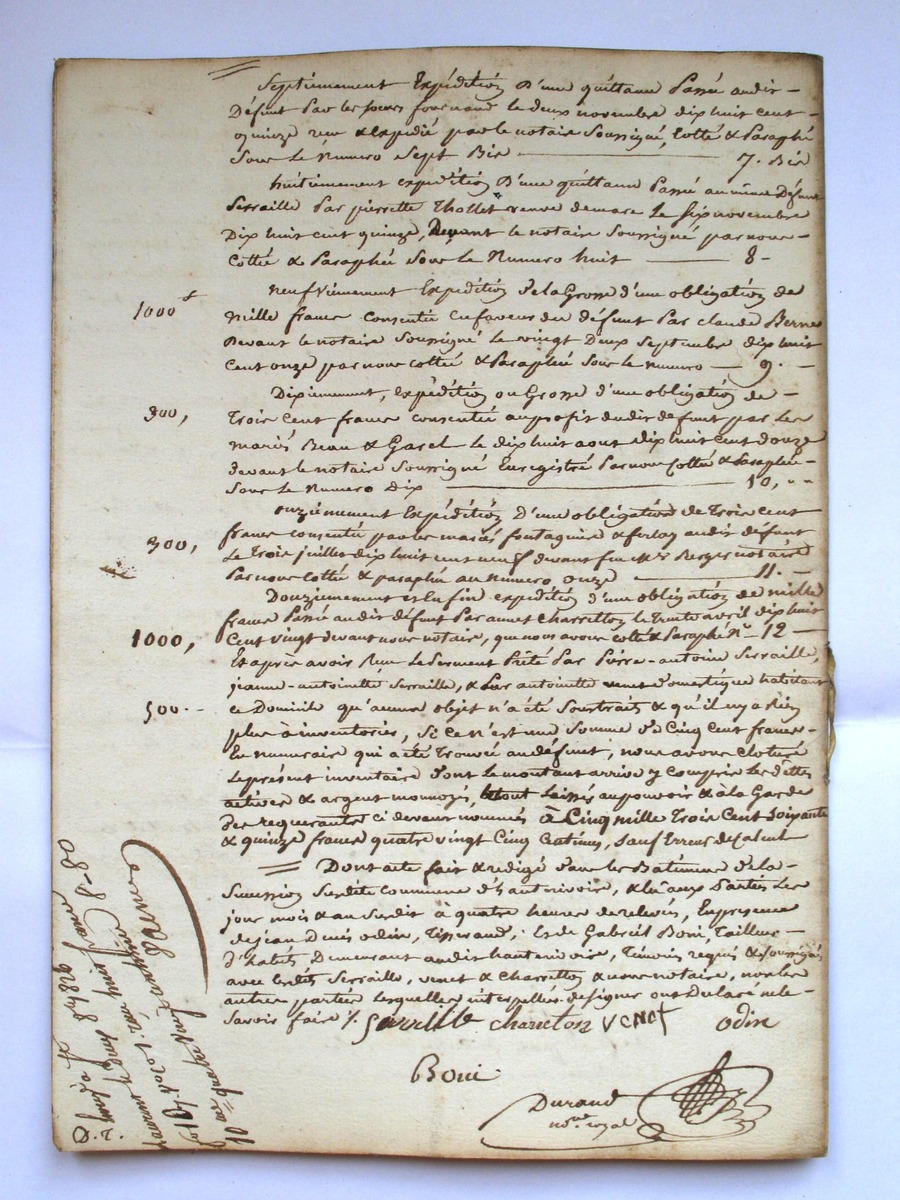 Septiemement Expédition D'une quittance Passé audit
Défunt Par les sieurs fournand le deux novembre dix huit cent
quinze reçu & Expédié par le notaire Soussigné, Cotté & Paraphé
Sous le Numero Sept Bis 7. Bis
huitiemement expédition D'une quittance Passé au même Défunt
Serraille Par pierrette Thollet veuve demare Le six novembre
Dix huit cent quinze, Devant le notaire Soussigné par nous
Cotté & Paraphée Sous le Numero huit 8
Neufviemement Expédition de la Grosse d'une obligation de
1000 f
mille francs consentie en faveur du défunt Par claude Berne
Devant le notaire Soussigné le vingt Deux Septembre dix huit
Cent onze par nous cottée & Paraphée Sous le numero 9.
Dixiemement, expédition ou Grosse d'une obligation de
300,
Trois Cent francs consentie au profit dudit défunt par Les
mariés Beau & Garel Le dix huit aout dix huit cent douze
devant le notaire Soussigné Enregistré Par nous Cotté & Paraphée
Sous le Numero Dix 10,
onziemement Expédition D'une obligation de Trois Cent
300,
francs consentie par les mariés fontagnire & ferlay audit défunt
Le Trois juillet dix huit cent neuf devant feu Mr Berger notaire
Par nous Cotté & paraphé au Numero onze 11.
Douziemement et Enfin expédition d'une obligation de mille
francs Passé audit défunt Par annet Charretton le Trente avril dix huit
1000,
Cent vingt devant nous notaire, que nous avons cotté & Paraphé No 12
Et après avoir Reçu le Serment Prêté Par Pierre-antoine Serraille,
jeanne-antoinette Serraille, & Par antoinette venet Domestique habitant
500.
ce Domicile qu'aucun objet n'a été Soustrait & qu'il n'y a Rien
plus à inventorier, Si ce n'est une Somme De Cinq Cent francs
En numeraire qui a été Trouvée au défunt, nous avons Cloturé
Le présent inventaire Dont Le montant arrive y Compris Les dettes
actives & argent monnoyé, le tout Laissés au pouvoir & à la Garde
Des requerants ci devant nommés à Cinq mille Trois Cent Soixante
& quinze francs quatre vingt Cinq Centimes, Sauf Erreur de Calcul
Dont acte fait & redigé Dans les Batimens De la
Succession Susdite Commune d'hauterivoire, & lu aux Parties Les
jour mois & an Susdit à quatre heures de relevée, En présence
de jean Denis odin, Tisserand, & de Gabriel Boni, Tailleur
D'habits Demeurant audit hauterivoire, Témoins requis & Soussignés
avec lesdits Serraille, venet & Charretton & nous notaire, non les
autres parties Lesquelles interpellés de signer ont Déclaré ne le
Savoir faire /.
Serraille charreton venet odin
Boni
Durand
nore royal